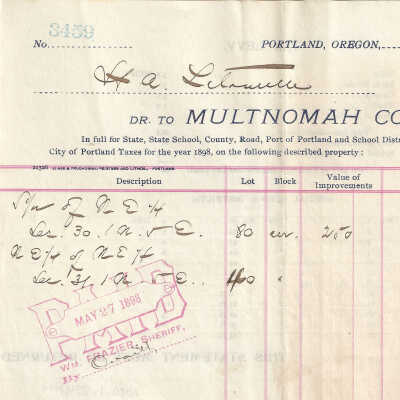 3459
No. PORTLAND, OREGON,
H A.
DR. TO MULTNOMAH CO
In full for State, State School, County, Road, Port of Portland and School Dist
City of Portland Taxes for the year 1898, on the following described property:
Description Lot Block Value of Improvements
of N E 4
Sec. 30. 1 N. 5 E. 80 250
N E 4 of N E 4
Sec. 31 1 N 5 E.. 40 "
PAID
MAY 27 1898
WM. FRAZIER, SHERIFF,
By